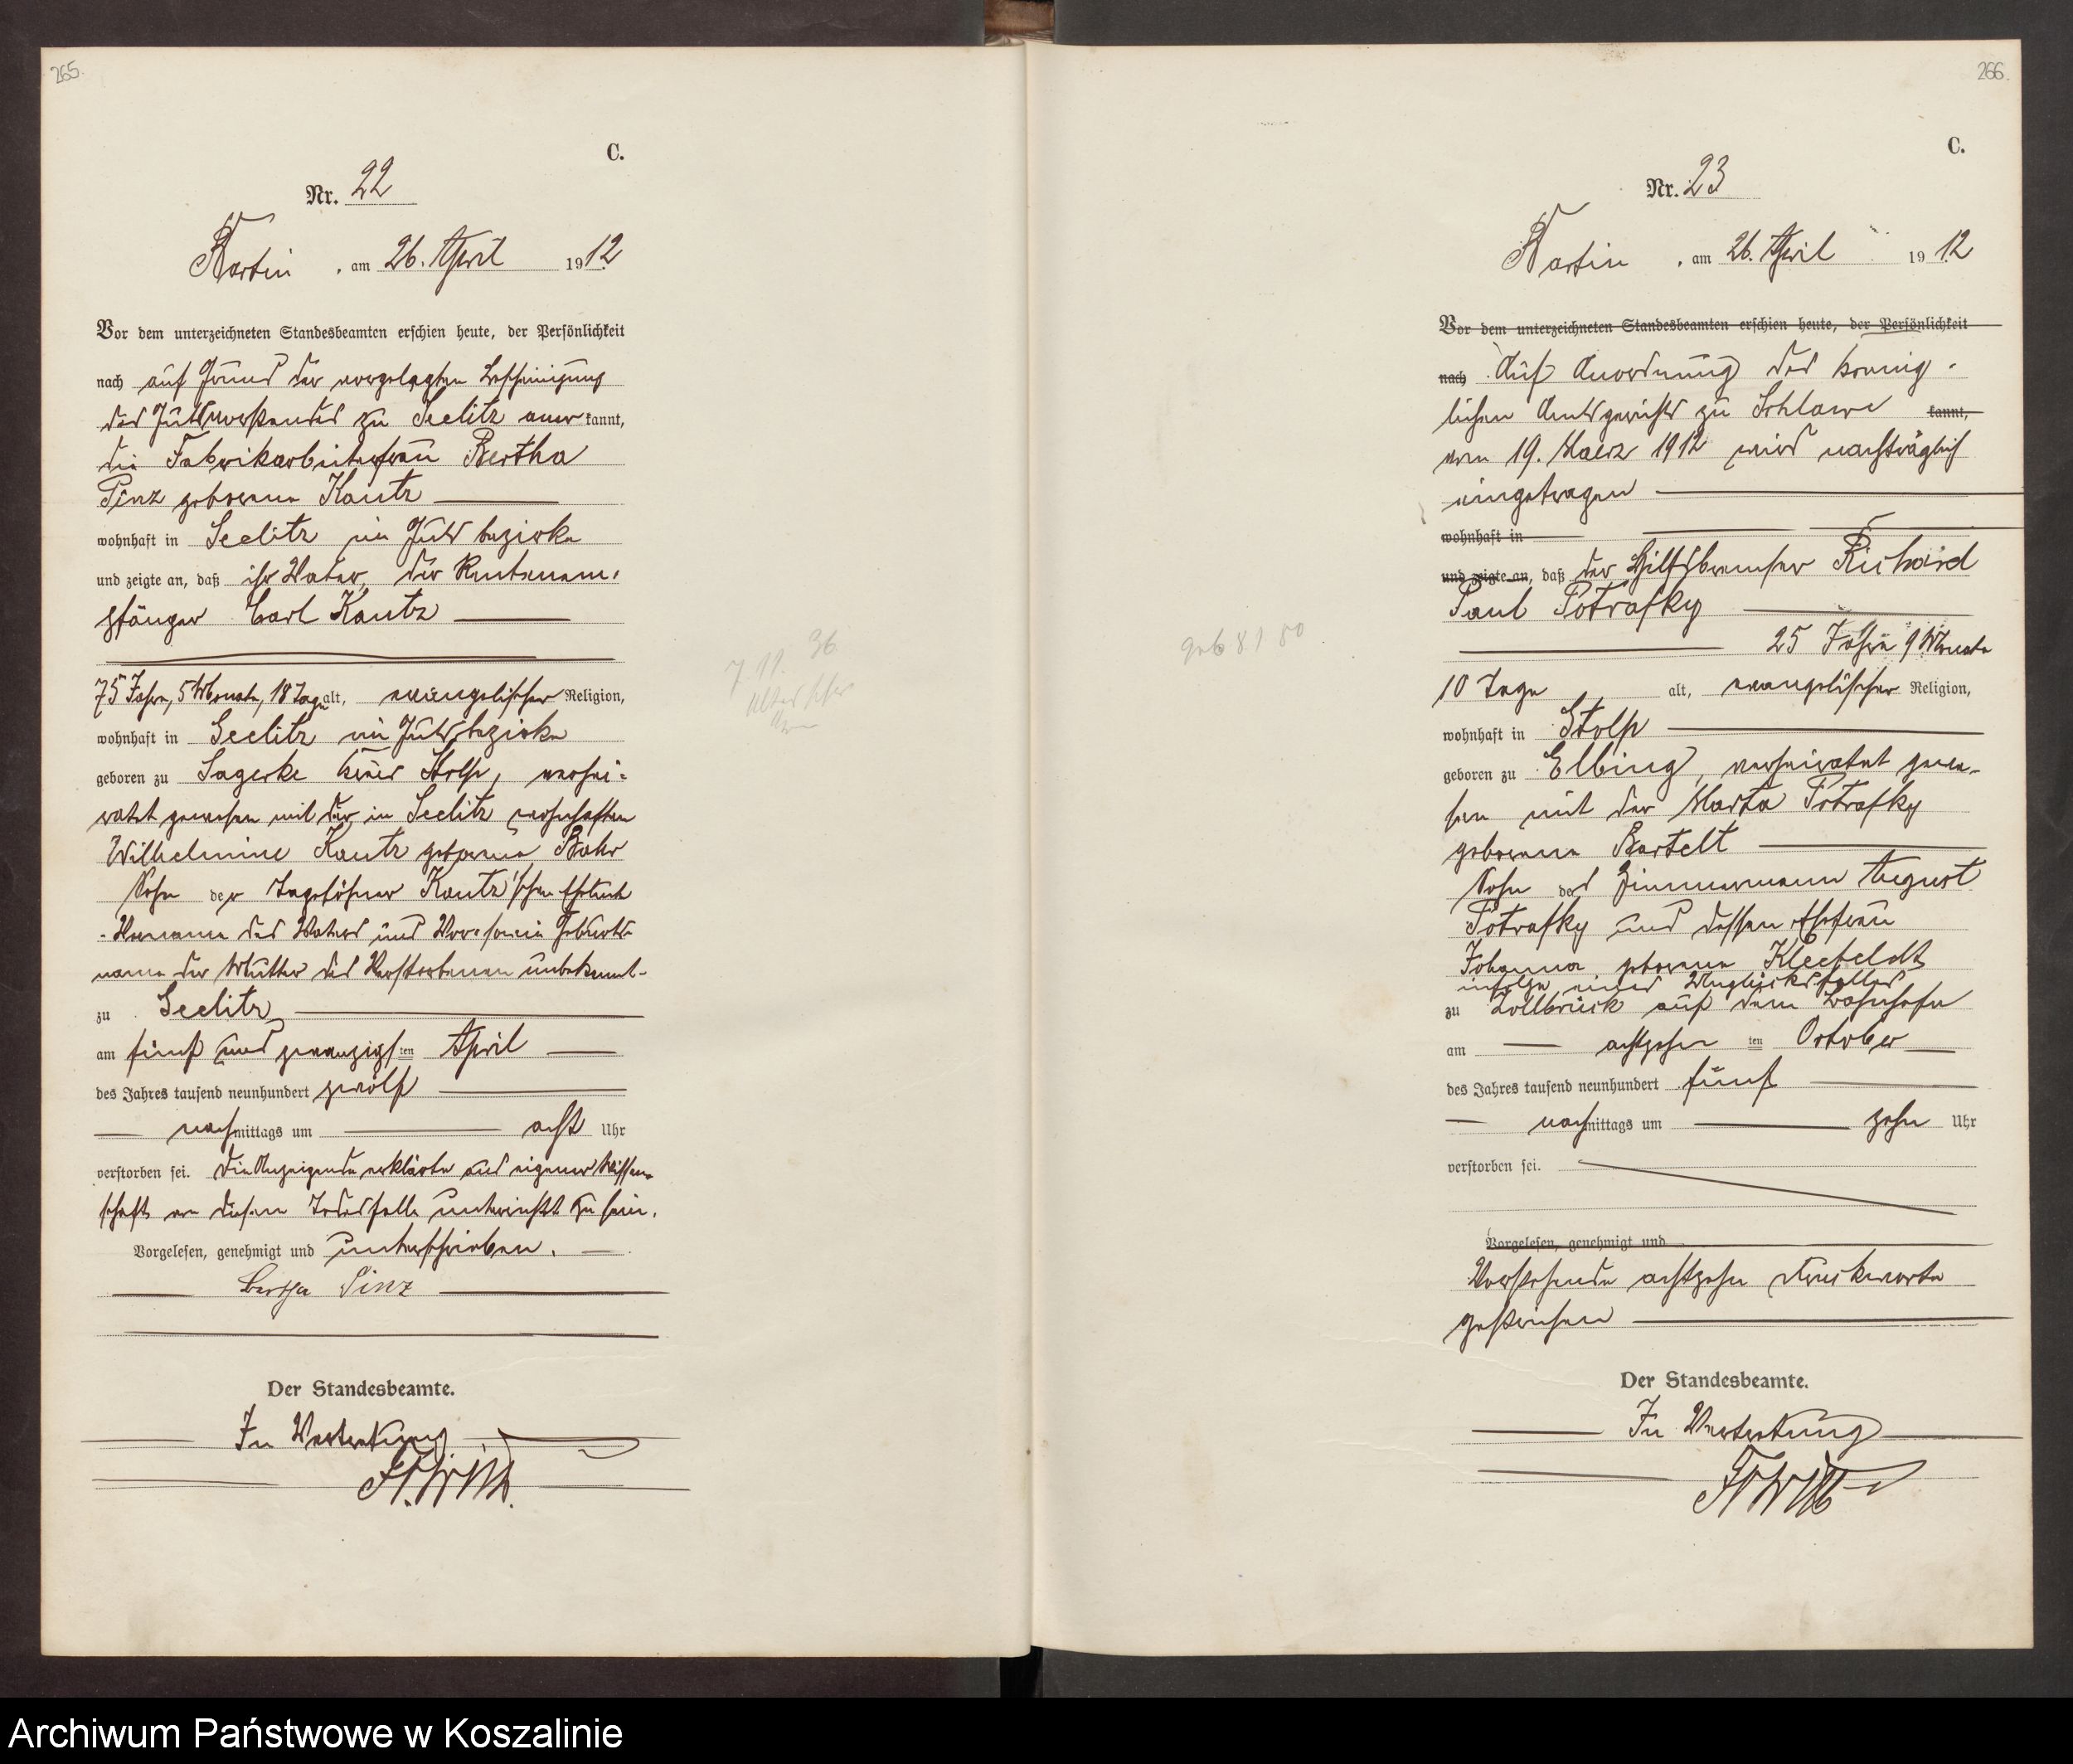 265.
C.
Nr. 22
Kartin, am 26. April 1912
Vor dem unterzeichneten Standesbeamten erschien heute, der Persönlichkeit
nach auf Grund der vorgelegten Bescheinigung
des Gutsvorstandes zu Seelitz anerkannt,
die Fabrikarbeiterfrau Bertha
Pinz geborene Kautz
wohnhaft in Seelitz im Gutsbezirke
und zeigte an, daß ihr Vater, der Rentenem-
pfänger Carl Kautz
75 Jahre, 5 Monate, 18 Tage alt, evangelischer Religion,
wohnhaft in Seelitz im Gutsbezirke
geboren zu Sagerke Kreis Stolp, verhei-
ratet gewesen mit der in Seelitz wohnhaften
Wilhelmine Kautz geborene
Sohn der Tagelöhner Kautz'schen Eheleute
- Vorname des Vaters und Vor- sowie Geburts-
name der Mutter des Verstorbenen unbekannt -
zu Seelitz
am fünf und zwanzigsten April
des Jahres tausend neunhundert zwölf
nachmittags um acht Uhr
verstorben sei. Die Anzeigende erklärte aus eigener Wissen-
schaft von diesem Todesfalle unterrichtet zu sein.
Vorgelesen, genehmigt und unterschrieben.
Bertha Pinz
Der Standesbeamte.
In Vertretung
7.11.36
266.
C.
Nr. 23
Kartin, am 26. April 1912
Vor dem unterzeichneten Standesbeamten erschien heute, der Persönlichkeit
nach Auf Anordnung des König-
lichen Amtsgerichts zu Schlawe kannt,
vom 19. Maerz 1912 wird nachträglich
eingetragen
wohnhaft in
und zeigte an, daß der Hilfsbremser Richard
Paul Potrafky
25 Jahre 9 Monate
10 Tage alt, evangelischer Religion,
wohnhaft in Stolp
geboren zu Elbing, verheiratet gewe-
sen mit der Marta Potrafky
geborene Bartelt
Sohn des Zimmermann August
Potrafky und dessen Ehefrau
Johanna, geborene Kleefeldt
infolge eines Unglücksfalles
zu Zollbrück auf dem Bahnhofe
am achtzehnten October
des Jahres tausend neunhundert fünf
nachmittags um zehn Uhr
verstorben sei.
Vorgelesen, genehmigt und
Vorstehende achtzehn Druckworte
gestrichen
Der Standesbeamte.
In Vertretung
geb 8 1 80
Archiwum Państwowe w Koszalinie